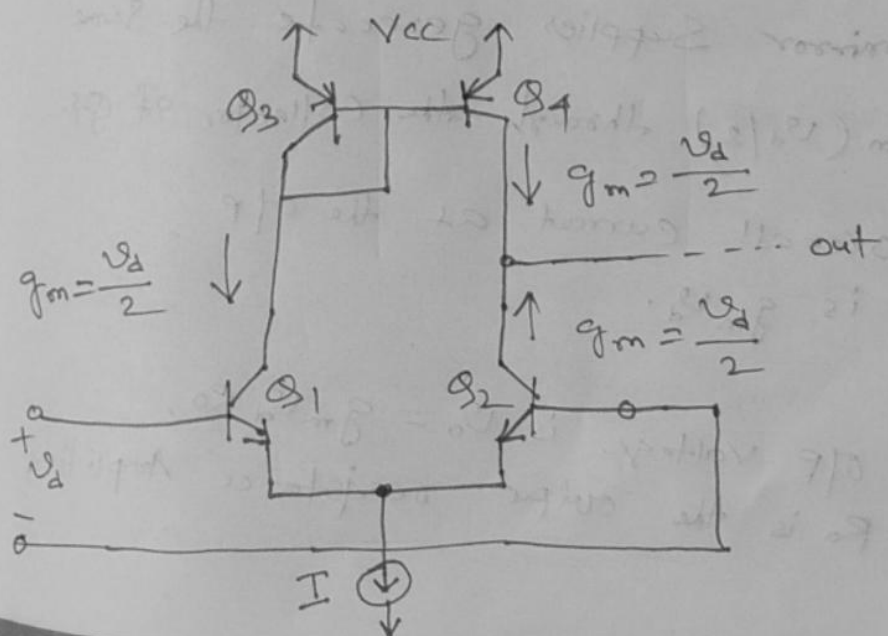 Vcc
Q3
Q4
gm = vd/2
out
gm = vd/2
gm = vd/2
Q1
Q2
+
vd
-
I